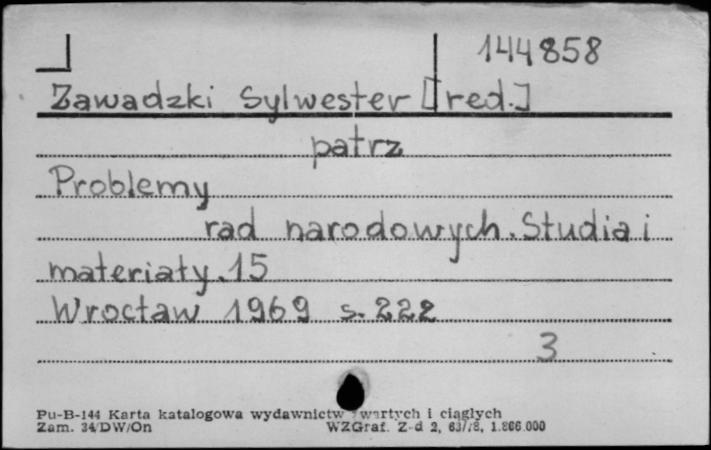 144858
Zawadzki Sylwester [red.]
patrz
Problemy
rad narodowych. Studia i
materiały. 15
Wrocław 1969 s. 222
3
Pu-B-144 Karta katalogowa wydawnictw zwartych i ciągłych
Zam. 34/DW/On WZGraf. Z-d 2, 637/8, 1.866.000